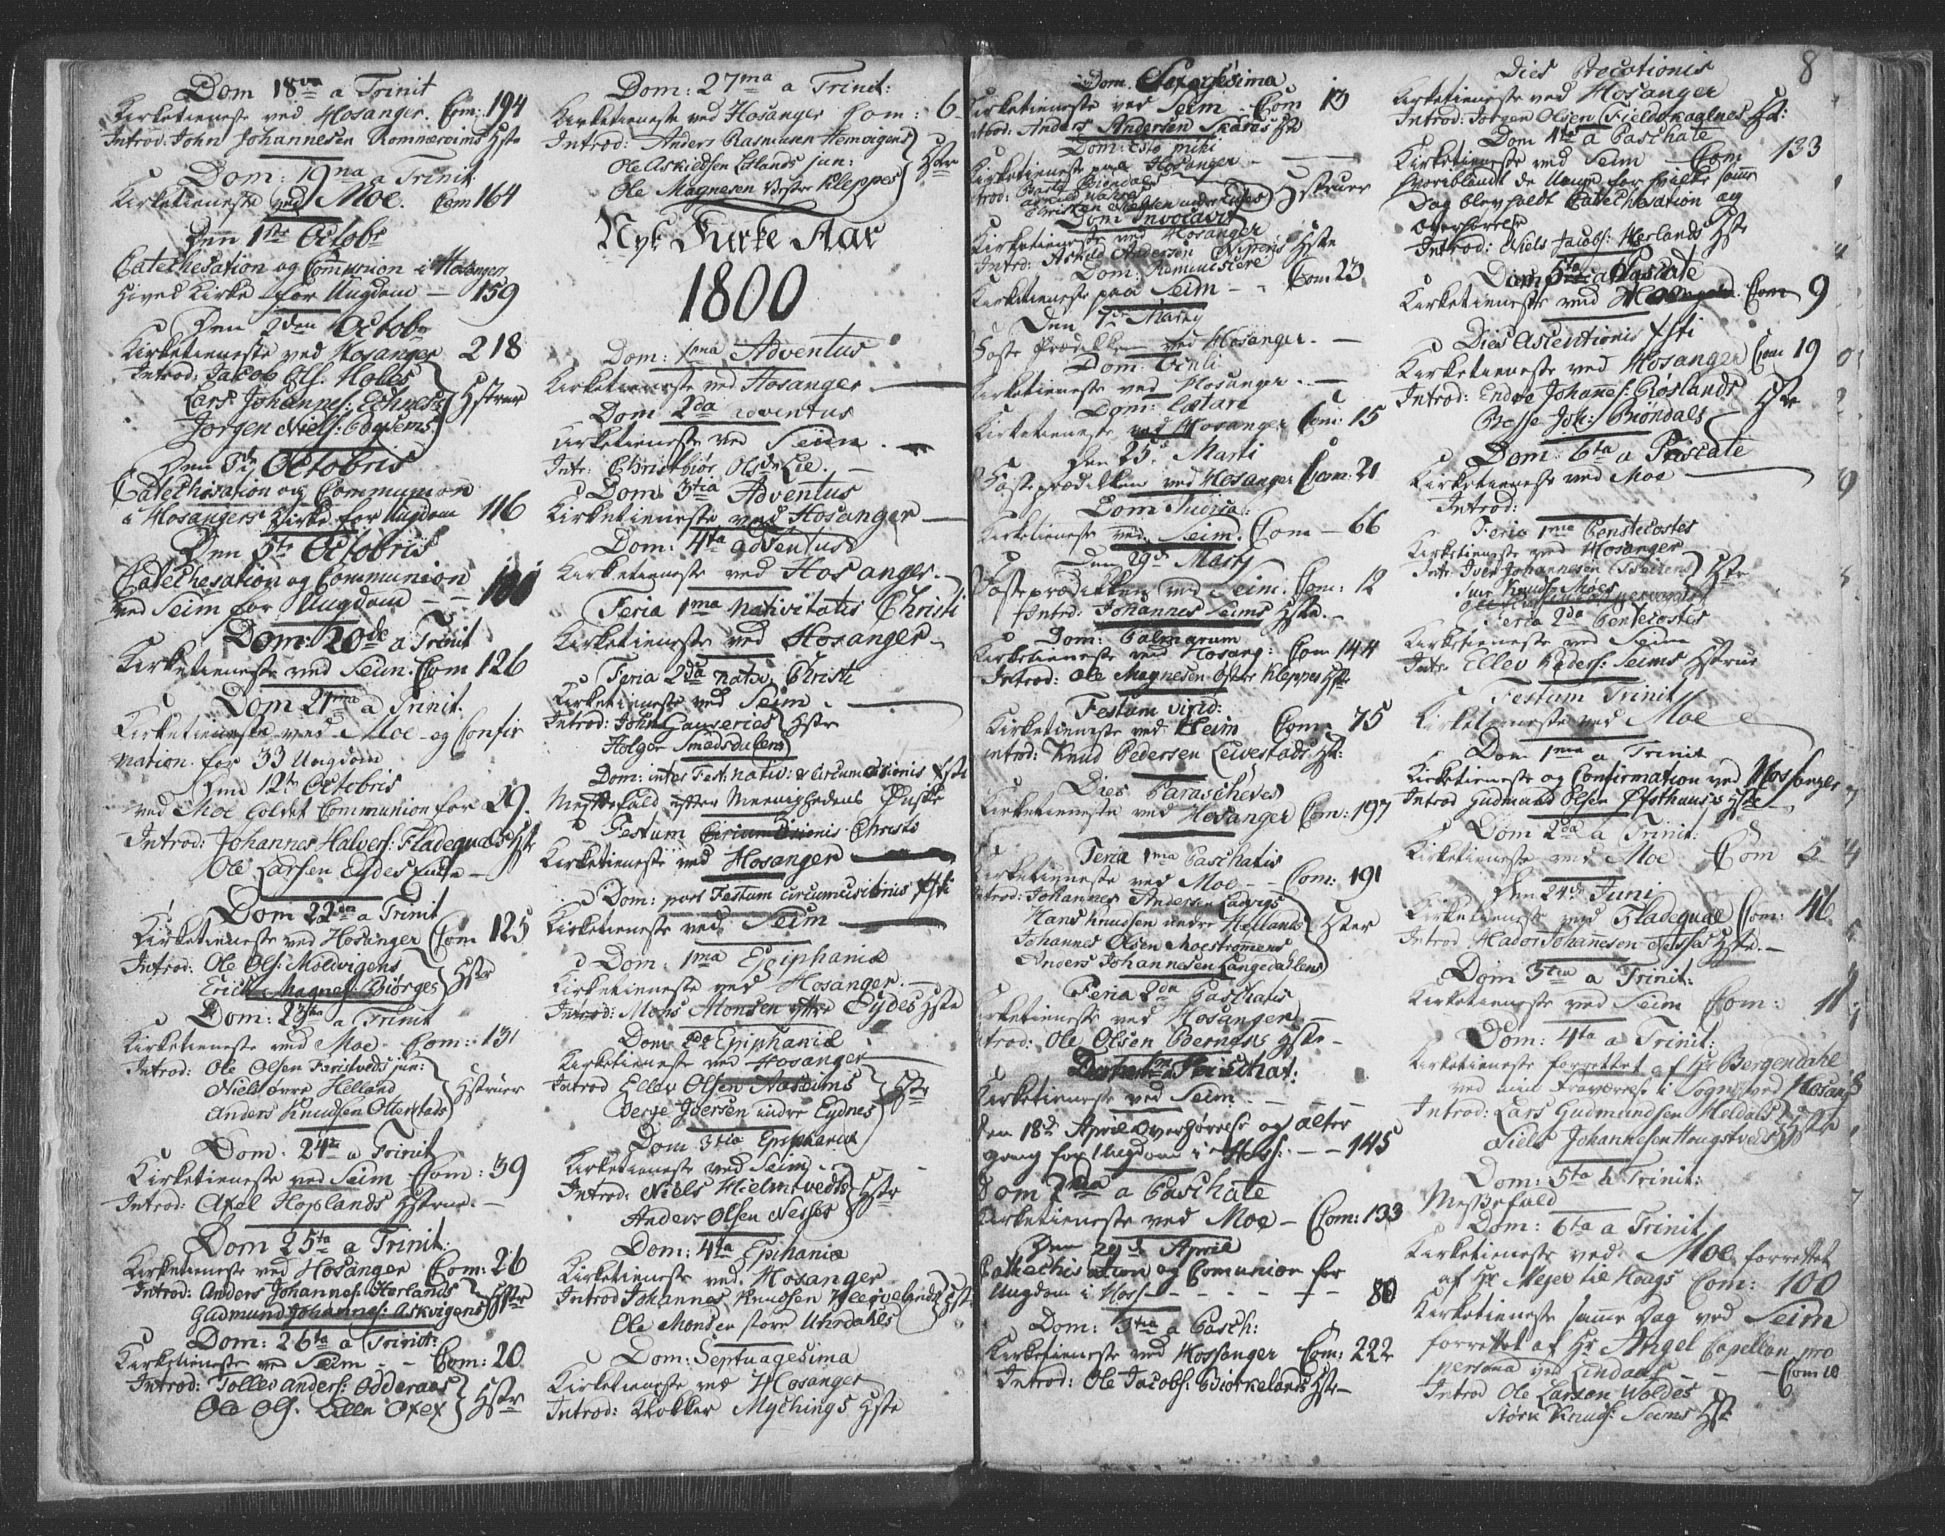 Dom 18va a Trinit
Kirketieneste ved Hosanger. Com: 194
Introd: John Johannesen Rommereims Hste
Dom: 19na a Trinit
Kirketieneste ved Moe. Com 164
Den 1ste Octobr
Catechesation og Communion i Hosangers
Hived Kirke for Ungdom — 159
Den 2den Octobr
Kirketieneste ved Hosanger 218
Introd: Jacob Ols: Holes
Lars Johannes:
Jorgen Niels:
Hstruer
Octobris
Catechisation og Communion
i Hosangers Kirke for Ungdom 116
Den 5te Octobris
Catechesation og Communion
ved Seim for Ungdom — 100
Dom: 20de a Trinit
Kirketieneste ved Seim: Com 126
Dom 21ma a Trinit:
Kirketieneste ved Moe og Confir
mation for 33 Ungdom
12te Octobris
ved Moe holdet Communion for 29.
Introd: Johannes Halvors: Fladequals Hste
Ole Larsen Eydes
Dom 22da a Trinit
Kirketieneste ved Hosanger Com 125
Introd: Ole Ols: Moldvigens
Erick Magnes: Biörges
Hstr
Dom: 23tia a Trinit
Kirketieneste ved Moe. Com: 131
Introd: Ole Olsen Faristveds jun:
Niels övre Helland
Anders Knudsen Otterstads
Hstruer
Dom: 24ta a Trinit
Kirketieneste ved Seim Com: 39
Introd: Axel Hoplands Hstrue. —
Dom 25ta a Trinit:
Kirketieneste ved Hosanger Com: 26
Introd: Anders Johannes: Herlands
Gudmund Johannes: Askvigens
Hstr
Dom: 26ta a Trinit:
Kirketieneste ved Seim - - Com: 20
Introd: Tolles Anders: Odderaas
Ole Ols:
Hstr
Dom: 27ma a Trinit:
Kirketieneste ved Hosanger Com: 6
Introd: Anders Rasmusen Hemvigens
Ole Askieldsen Eslands jun:
Ole Magnesen Vester Kleppes
Hstr
Nyt Kirke Aar
1800
Dom: 1ma Adventus
Kirketieneste ved Hosanger. —
Dom 2da adventus
Kirketieneste ved Seim. —
Intr: Christbiör Olsdr Lie. —
Dom: 3tia Adventus
Kirketieneste ved Hosanger —
Dom: 4ta adventus
Kirketieneste ved Hosanger. —
Feria 1ma nativitatis Christi
Kirketieneste ved Hosanger —
Feria 2da nativ: Christi
Kirketieneste ved Seim. —
Introd: John Hste
Holger Smedsdalens
Dom: inter Fest: nativ: & Circumcisionis Xsti
Messefald efter Meenighedens Önske
Festum Circumcisionis Christi
Kirketieneste ved Hosanger —
Dom: post Festum circumcisionis Xsti
Kirketieneste ved Seim —
Dom: 1ma Epiphania
Kirketieneste ved Hosanger. —
Introd: Mons Monsen yttre Eydes Hste
Dom 2da Epiphania
Kirketieneste ved Hosanger
Introd Ellev Olsen Aasems
Berge Joersen indre Eydnes
Hstr
Dom 3tia Epiphania
Kirketieneste ved Seim. -
Introd: Niels Hielmtvedts
Anders Olsen Nesses
Hstr
Dom: 4ta Epihania
Kirketieneste ved Hosanger
Introd Johannes Knudsen
Ole Monsen store Urdahls
Hst
Dom: Septuagesima
Kirketieneste ved Hosanger
Introd: Hokker Mychings Hste
Dom. Sexagesima
Kirketieneste ved Seim - Com 13
Introd: Anders Andersen Skaras Hste
Dom: Esto mihi
Kirketieneste paa Hosanger - —
Hstruer
Dom Invocavit
Kirketieneste ved Hosanger
Introd: Askild Andersen Nipens Hste
Dom: Reminiscere
Kirketieneste paa Seim - - Com 23
Den 7de Martij
Faste Prædikken ved Hosanger. —
Dom: Oculi
Kirketieneste ved Hosanger. —
Dom: Lætare
Kirketieneste ved Hosanger Com: 15
Den 25de Marti
Fasteprædikken ved Hosanger Com: 21
Dom Judica:
Kirketieneste ved Seim. Com — 66
Den 29de Martij
Fasteprædikken ved Seim. Com: 12
Introd: Johannes Seims Hste. —
Dom: Palmarum
Kirketieneste ved Hosang: Com 144
Introd: Ole Magnesen Öster Kleppes Hste
Festum virid:
Kirketieneste ved Seim Com: 75
Introd: Knud Pedersen Leivestads Hst:
Dies Parascheves
Kirketieneste ved Hosanger Com: 197
Feria 1ma Paschatis
Kirketieneste ved Moe - - Com: 191
Introd: Johannes Andersen Ladvigs
Hans Knudsen indre Hellands
Johannes Olsen Moestrømens
Anders Johannesen Langedahlens
Hster
Feria 2da Paschatis
Kirketieneste ved Hosanger —
Introd: Ole Olsen Bernæs Hste —
Paschat:
Kirketieneste ved Seim — —
Den 18de April Overhørelse og alter
gang for Ungdom i Hos: — — 145
Dom 2da a Paschate
Kirketieneste ved Moe — Com: 133
Den 29de April
Cathechisation og Comunion for
Ungdom i Hos - - - - 80
Dom: 3tia a Pasch:
Kirketieneste ved Hossanger Com: 222
Introd: Ole Jacobs: Biörkelands Hste —
8
Dies Precationis
Kirketieneste ved Hosanger
Introd: Jorgen Olsen Fieldskaalnes Hst:
Dom 4ta a Paschate
Kirketieneste ved Seim — Com 133
hvoriblandt de Unge for hvilke samme
Dag blev holdt Catechesation og
Overhörelse
Introd: Niels Jacobs: Herlands Hste
Dom 5ta a Pascate
Kirketieneste ved Com 9
Dies Ascentionis Xsti
Kirketieneste ved Hosanger Com 19
Introd: Endre Johannes: Eioslands
Besse Joh: Biöndals
Hste
Dom: 6ta a Pascate
Kirketieneste ved Moe —
Introd:
Feria 1ma Pentecostes
Kirketieneste ved Hosanger
Intr: Iver Johannesen
Siur Knuds: Moes
Hste
Feria 2da Pentecostes
Kirketieneste ved Seim
Intr: Ellev Peders: Seims Hstrue
Festum Trinit
Kirketieneste ved Moe
Dom 1ma a Trinit
Kirketieneste og Confirmation ved Hossanger
Introd Gudmund Olsen Össthuus's Hste
Dom 2da a Trinit:
Kirketieneste ved Moe. Com 5
Den 24de Juni
Kirketieneste ved Fladequal Com: 46
Introd Hador Johannesen Hste. —
Dom 3tia a Trinit:
Kirketieneste ved Seim Com: 11
Dom: 4ta a Trinit:
Kirketieneste forrettet af Hr Bergendahl
ved min Fraværelse i Sogn ved Hosang
Introd: Lars Gudmundsen Meldals
Niels Johannesen Hougstveds
Hste
Dom: 5ta a Trinit:
Messefald
Dom: 6ta a Trinit
Kirketieneste ved Moe forrettet
af Hr Mejer til Hougs Com: 100
Kirketieneste samme Dag ved Seim
forrettet af Hr Angel Capellan pro
persona ved Lindaas - - Com 10
Introd Ole Larsen Woldes
Störk Knuds: Seims Hst